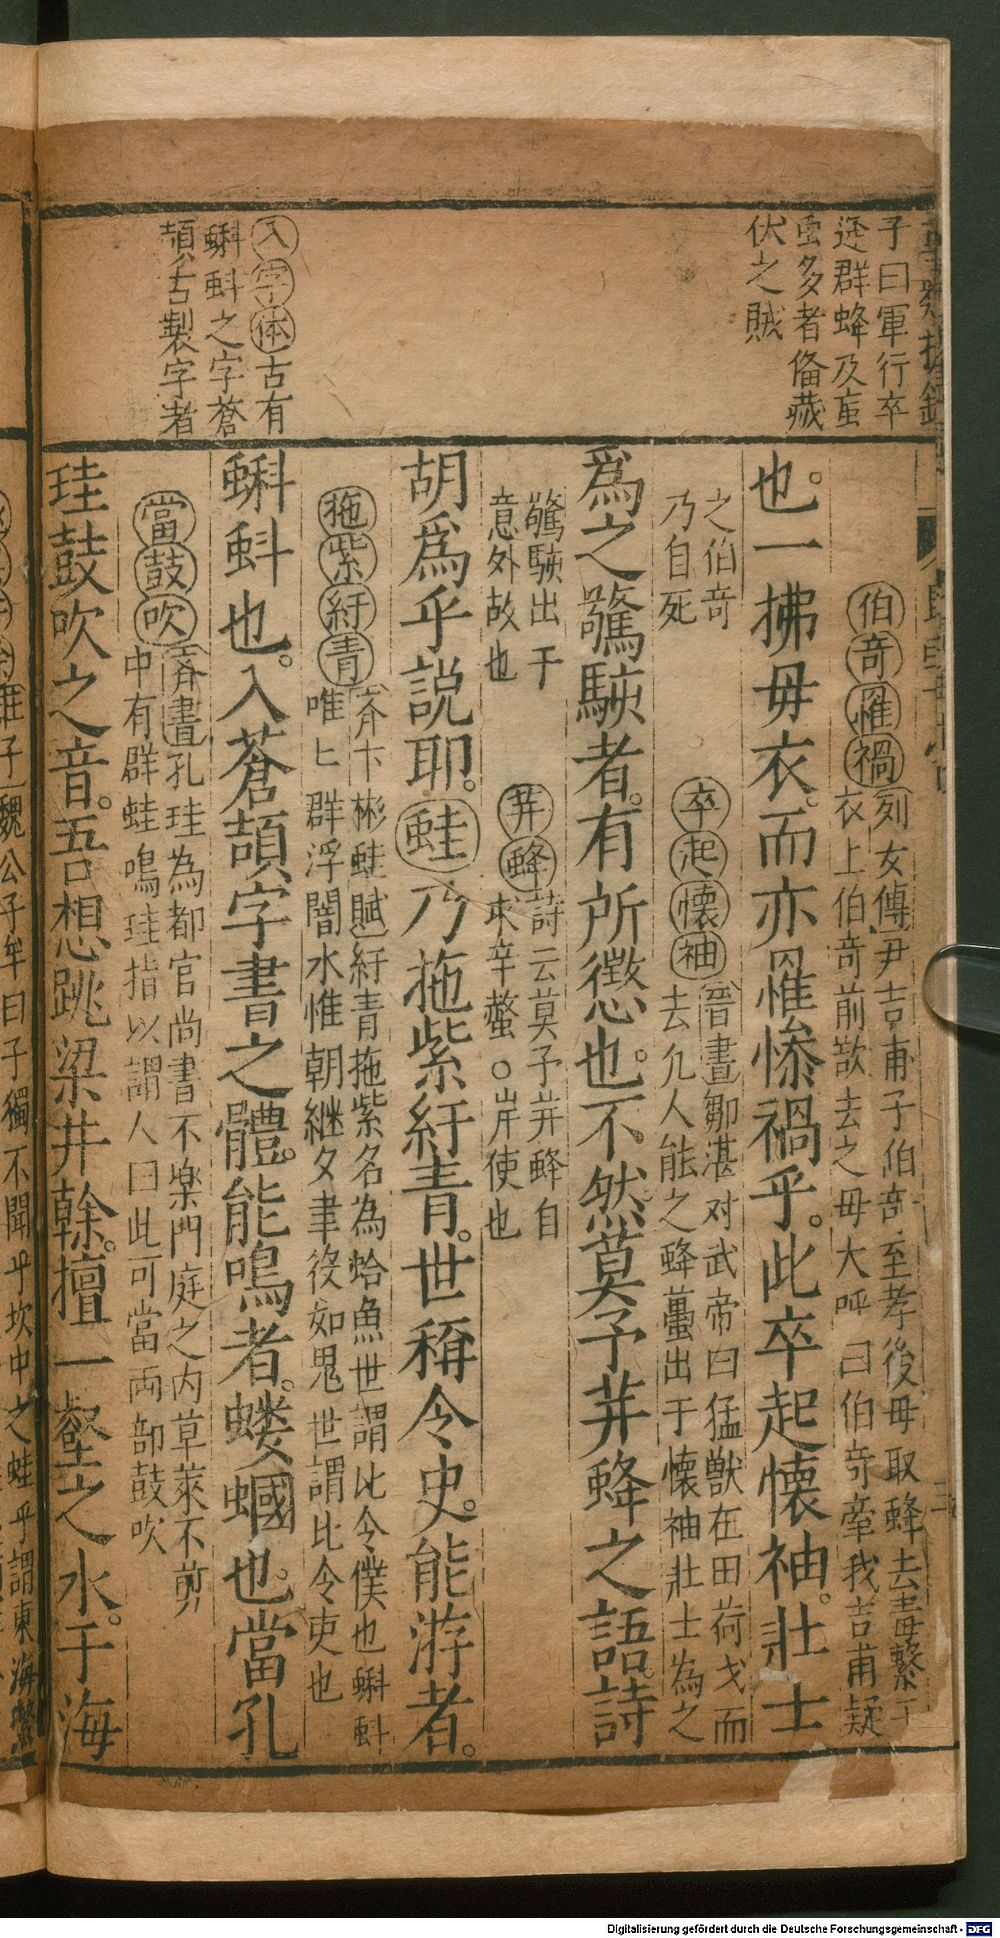 子曰軍行卒
逢群蜂及䖟
䖝多者偹藏
伏之賊
入字体古有
蝌蚪之字蒼
頡古製字者
伯竒罹禍列女傳尹吉甫子伯竒至孝後毋取蜂去毒繫于
衣上伯竒前欲去之毋大呼曰伯竒牽我吉甫疑
也。一拂毋衣。而亦罹慘禍乎。此卒起懷袖。壯士
之伯竒
乃自死
卒起懷袖晉書鄒湛对武帝曰猛獸在田荷戈而
去凢人能之蜂蠆出于懷袖壯士為之
爲之驚駭者。有所懲也。不然莫予荓蜂之語。詩
驚駭出于
意外故也
荓蜂詩云莫予荓蜂自
求辛螫○岸使也
胡爲乎説耶。蛙乃拖紫紆青。世稱令史。能游者。
拖紫紆青齐卞彬蛙賦紆青拖紫名為蛤魚世謂比令僕也蝌蚪
唯〻群浮闇水惟朝継夕聿役如鬼世謂比令吏也
蝌蚪也。入蒼頡字書之體。能鳴者。螻蟈也。當孔
當鼓吹齐書孔珪為都官尚書不樂門庭之内草萊不剪
中有群蛙鳴珪指以謂人曰此可當兩部鼓吹
珪鼓吹之音。吾想跳梁井幹。擅一壑之水。于海
子魏公子牟曰子獨不聞乎坎中之蛙乎謂東海鱉
Digitalisierung gefördert durch die Deutsche Forschungsgemeinschaft - DFG